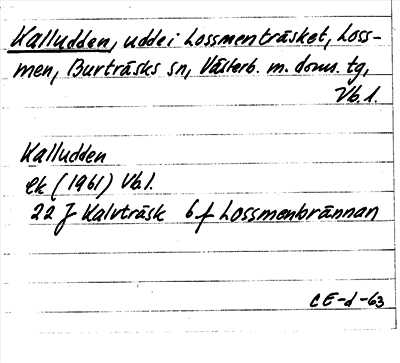 Kalludden, udde i Lossmenträsket, Loss-
men, Burträsks sn, Västerb. m. doms. tg,
Vb.l.
Kalludden
ek (1961) Vb.l.
22 J Kalvträsk 6 f Lossmenbrännan
CE-d-63